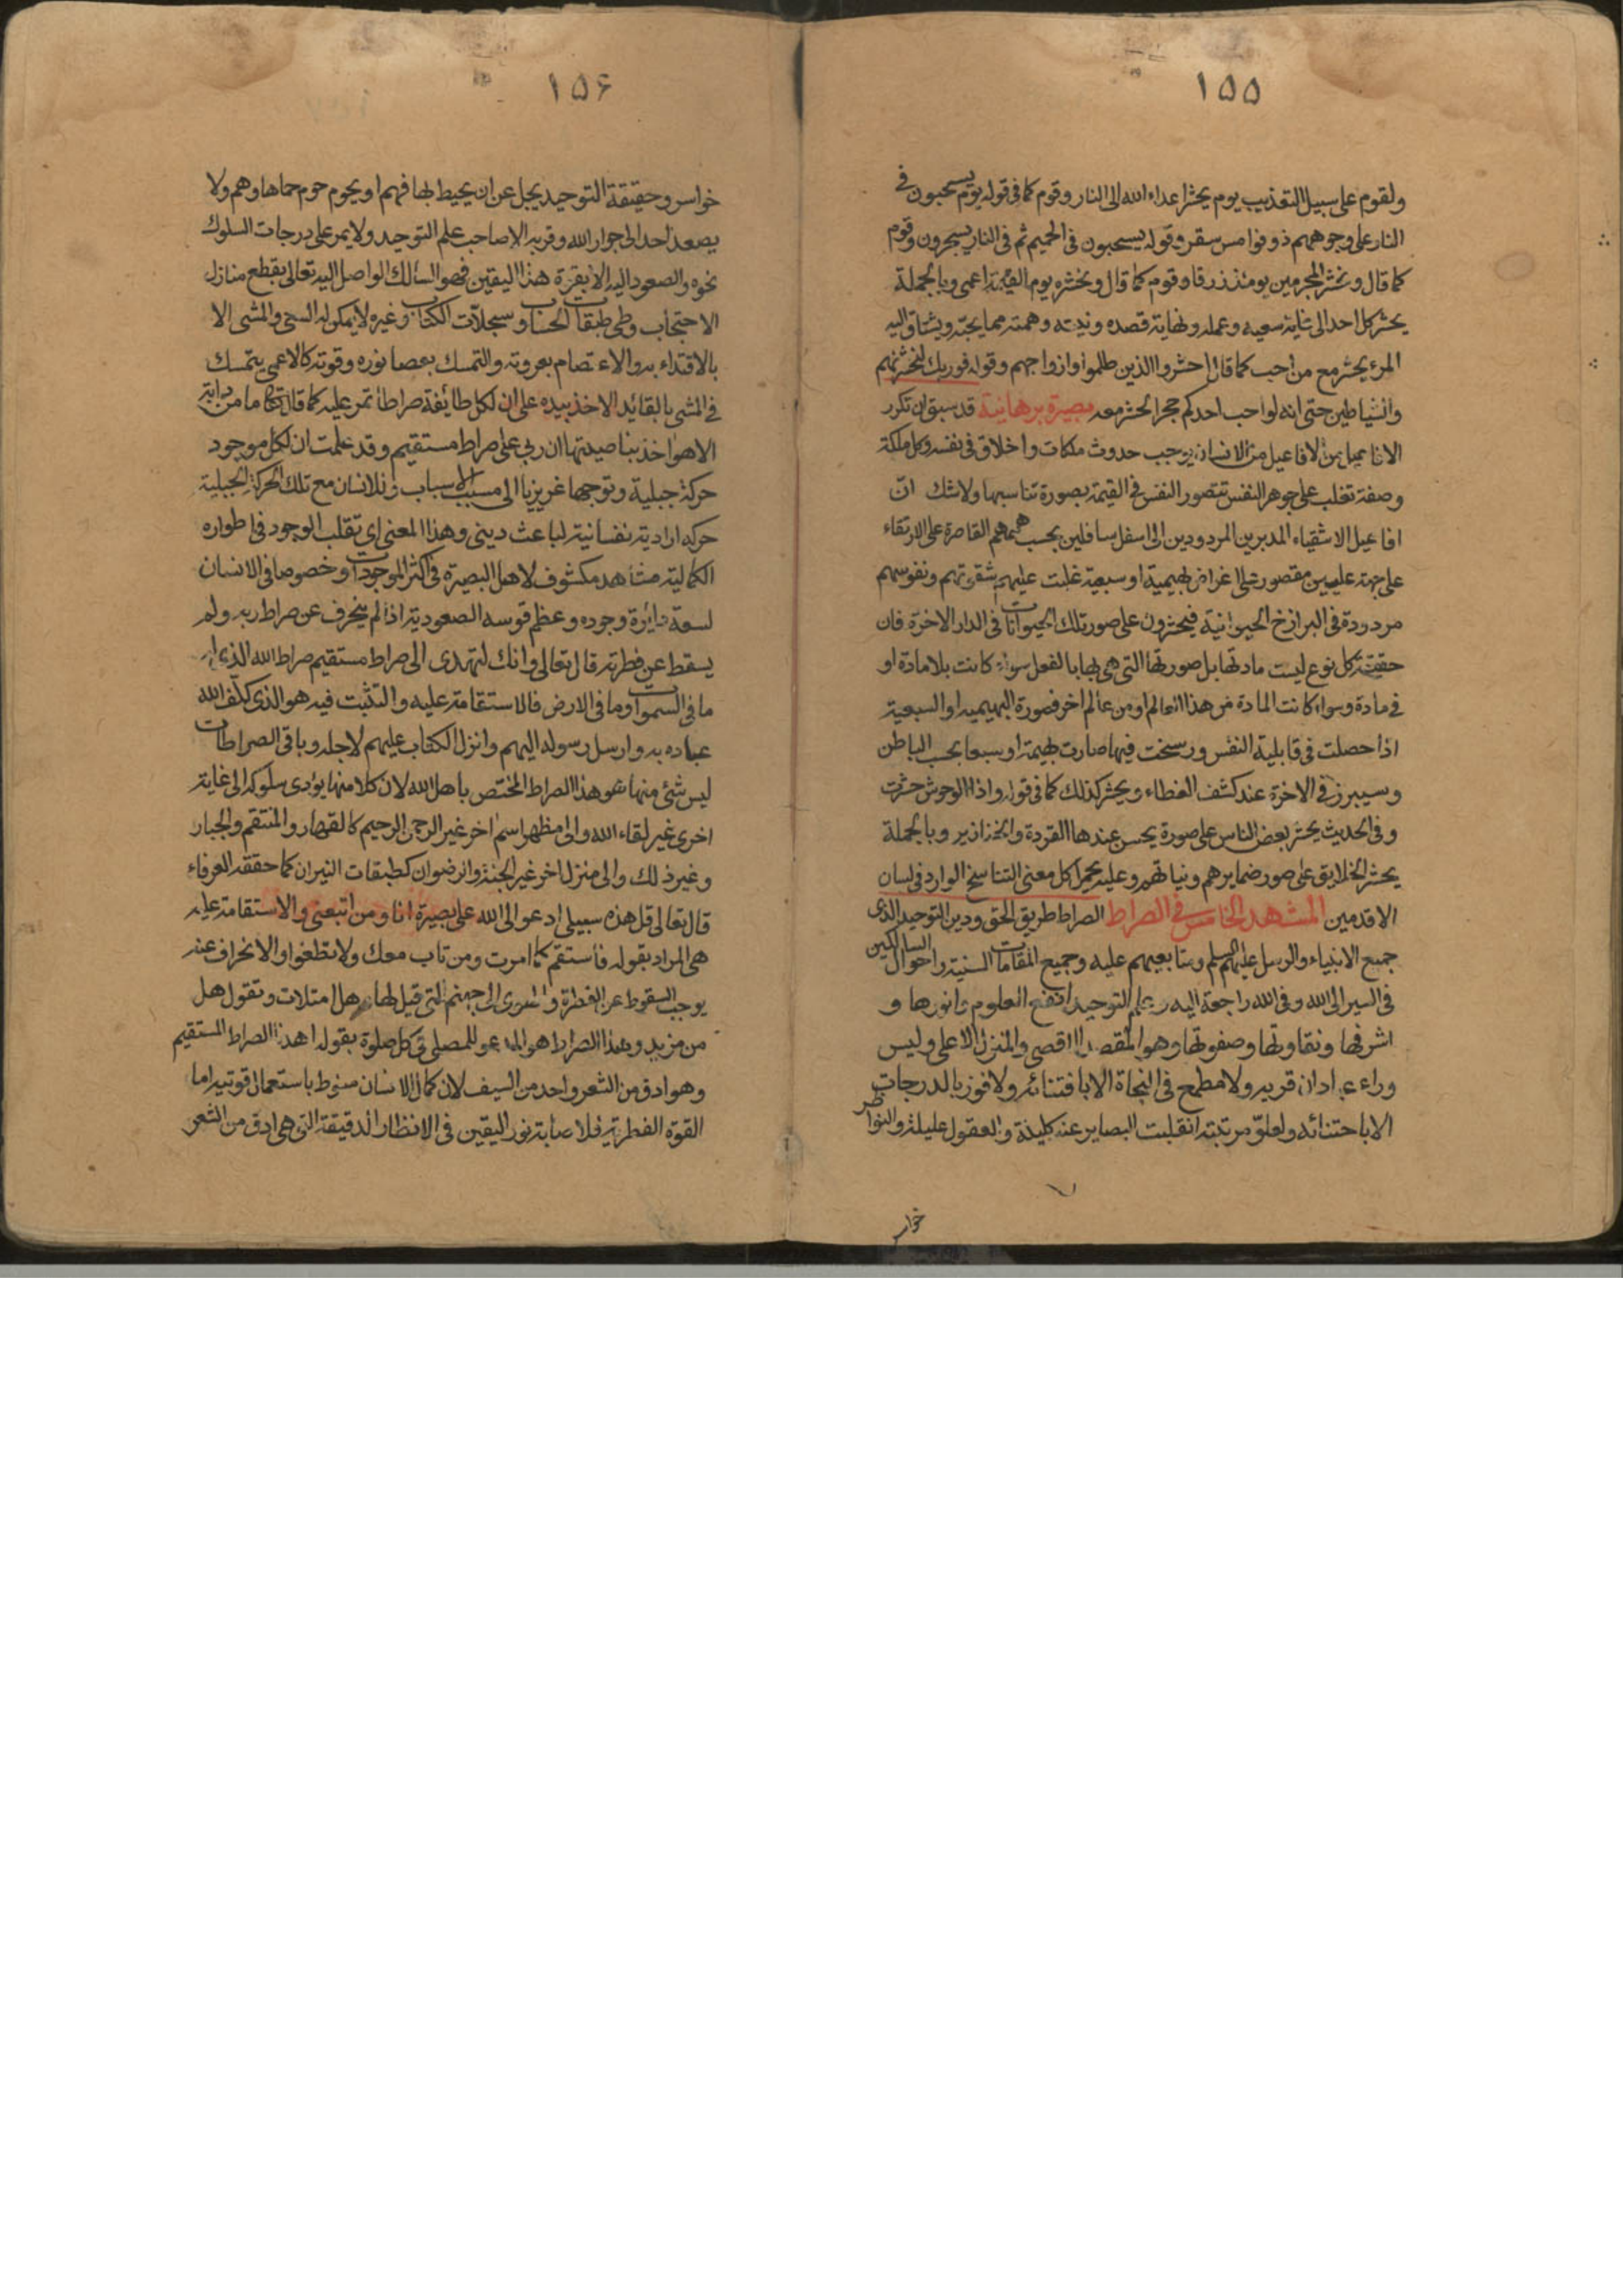 ١٥٥
ولقوم على سبيل التعذيب يوم يحشر اعداء الله الى النار وقوم كما فى قوله يوم يسحبون فى
النار على وجوههم ذوقوا مس سقر وقوله يسحبون فى الحميم ثم فى النار يسجرون وقوم
كما قال ونحشر المجرمين يومئذ زرقا وقوم كما قال ونحشره يوم القيمة اعمى وبالجملة
يحشر كل احد الى غاية سعيه وعمله ونهاية قصده ونيته وهمته مما يحبه ويشتاق اليه
المرء يحشر مع من احب كما قال احشروا الذين ظلموا وازواجهم وقوله فوربك لنحشرنهم
والشياطين حتى انه لو احب احدكم حجرا لحشر معه بصيرة برهانية قد سبق ان تكرر
الافاعيل من الانسان يوجب حدوث ملكات واخلاق فى نفسه وكل ملكة
وصفة تغلب على جوهر النفس تتصور النفس فى القيمة بصورة تناسبها ولا شك ان
افاعيل الاشقياء المدبرين المردودين الى اسفل سافلين بحسب هممهم القاصرة على الارتقاء
على جهة عليين مقصور على اغراض بهيمية او سبعية غلبت عليهم شقوتهم ونفوسهم
مردودة فى البرازخ الحيوانية فيحشرون على صور تلك الحيوانات فى الدار الاخرة فان
حقيقة كل نوع ليست مادتها بل صورتها التى هى بها بالفعل سواء كانت بلا مادة او
فى مادة وسواء كانت المادة من هذا العالم او من عالم اخر فصورة البهيمية او السبعية
اذا حصلت فى قابلية النفس ورسخت فيها صارت بهيمة او سبعا بحسب الباطن
وسيبرز فى الاخرة عند كشف الغطاء ويحشر كذلك كما فى قوله واذا الوحوش حشرت
وفى الحديث يحشر بعض الناس على صورة يحسن عندها القردة والخنازير وبالجملة
يحشر الخلايق على صور ضمايرهم ونياتهم وعليه يحمل كل معنى التناسخ الوارد فى لسان
الاقدمين المشهد الخامس فى الصراط الصراط طريق الحق ودين التوحيد الذى
جميع الانبياء والرسل عليهم السلم ومتابعيهم عليه وجميع المقامات السنية واحوال السالكين
فى السير الى الله وفى الله راجعة اليه وعلم التوحيد انفع العلوم وانورها و
اشرفها ونقاوتها وصفوتها وهو المقصد الاقصى والمنزل الاعلى وليس
وراء عبادان قرية ولا مطمح فى النجاة الا باقتنائه ولا فوز بالدرجات
الا باجتنائه ولعلو مرتبته انقلبت البصاير عنه كليلة والعقول عليلة والنواظر
خواسر
١٥٦
خواسر وحقيقة التوحيد يجل عن ان يحيط بها فهم او يحوم حوم حماها وهم ولا
يصعد احد الى جوار الله وقربه الا صاحب علم التوحيد ولا يمر على درجات السلوك
نحوه والصعود اليه الا بقوة هذا اليقين فهو السالك الواصل اليه تعالى بقطع منازل
الاحتجاب وطى طبقات الحساب وسجلات الكتاب وغيره لا يمكن له السعى والمشى الا
بالاقتداء به والاعتصام بعروته والتمسك بعصا نوره وقوته كالاعمى يتمسك
فى المشى بالقائد الاخذ بيده على ان لكل طائفة صراطا تمر عليه كما قال تعالى ما من دابة
الا هو اخذ بناصيتها ان ربى على صراط مستقيم وقد علمت ان لكل موجود
حركة جبلية وتوجها غريزيا الى مسبب الاسباب وللانسان مع تلك الحركة الجبلية
حركه ارادية نفسانية لباعث دينى وهذا المعنى اى تقلب الوجود فى اطواره
الكمالية مشاهد مكشوف لاهل البصيرة فى اكثر الموجودات وخصوصا فى الانسان
لسعة دائرة وجوده وعظم قوسه الصعودية اذا لم ينحرف عن صراط ربه ولم
يسقط عن فطرته قال تعالى وانك لتهدى الى صراط مستقيم صراط الله الذى له
ما فى السموات وما فى الارض فالاستقامة عليه والتثبت فيه هو الذى كلف الله
عباده به وارسل رسوله اليهم وانزل الكتاب عليهم لاجله وباقى الصراطات
ليس شئ منها هو هذا الصراط المختص باهل الله لان كلا منها يؤدى سلوكه الى غاية
اخرى غير لقاء الله والى مظهر اسم اخر غير الرحمن الرحيم كالقهار والمنتقم والجبار
وغير ذلك والى منزل اخر غير الجنة والرضوان كطبقات النيران كما حققه العرفاء
قال تعالى قل هذه سبيلى ادعو الى الله على بصيرة انا ومن اتبعنى والاستقامة عليه
هى المراد بقوله فاستقم كما امرت ومن تاب معك ولا تطغوا والانحراف عنه
يوجب السقوط عن الفطرة والهوى الى جهنم التى قيل لها هل امتلات وتقول هل
من مزيد وهذا الصراط هو المدعو للمصلى فى كل صلوة بقوله اهدنا الصراط المستقيم
وهو ادق من الشعر واحد من السيف لان كمال الانسان منوط باستعمال قوتيه اما
القوة الفطرية فلاصابة نور اليقين فى الانظار الدقيقة التى هى ادق من الشعر